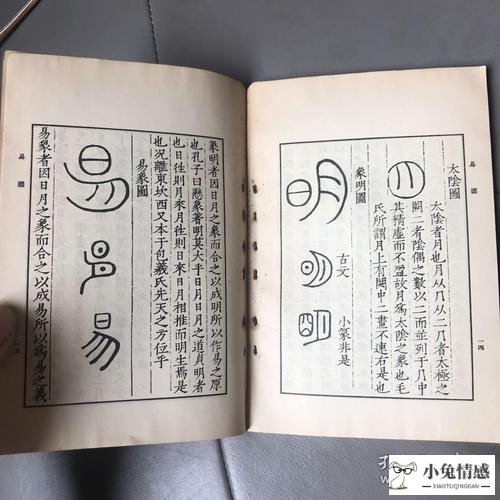 易圖
一四
太陰圖
太陰者月也月从几从二几者太極之
闕二者陰偶之數以二而並列于几中
其精虛而不盈故月爲太陰之象也毛
氏所謂月上有闕中二畫不連右是也
象明圖
明
古文
小篆非是
象明者因日月之象而合之以成明所以作易之原
也孔子曰懸象著明莫大乎日月日月之道貞明者
也日往則月來月往則日來日月相推而明生焉是
也况離東坎西又本于包羲氏先天之方位乎
易象圖
易
易
易象者因日月之象而合之以成易所以爲易之義
易圖
一五
小兔情感
XIAOTUQINGGAN